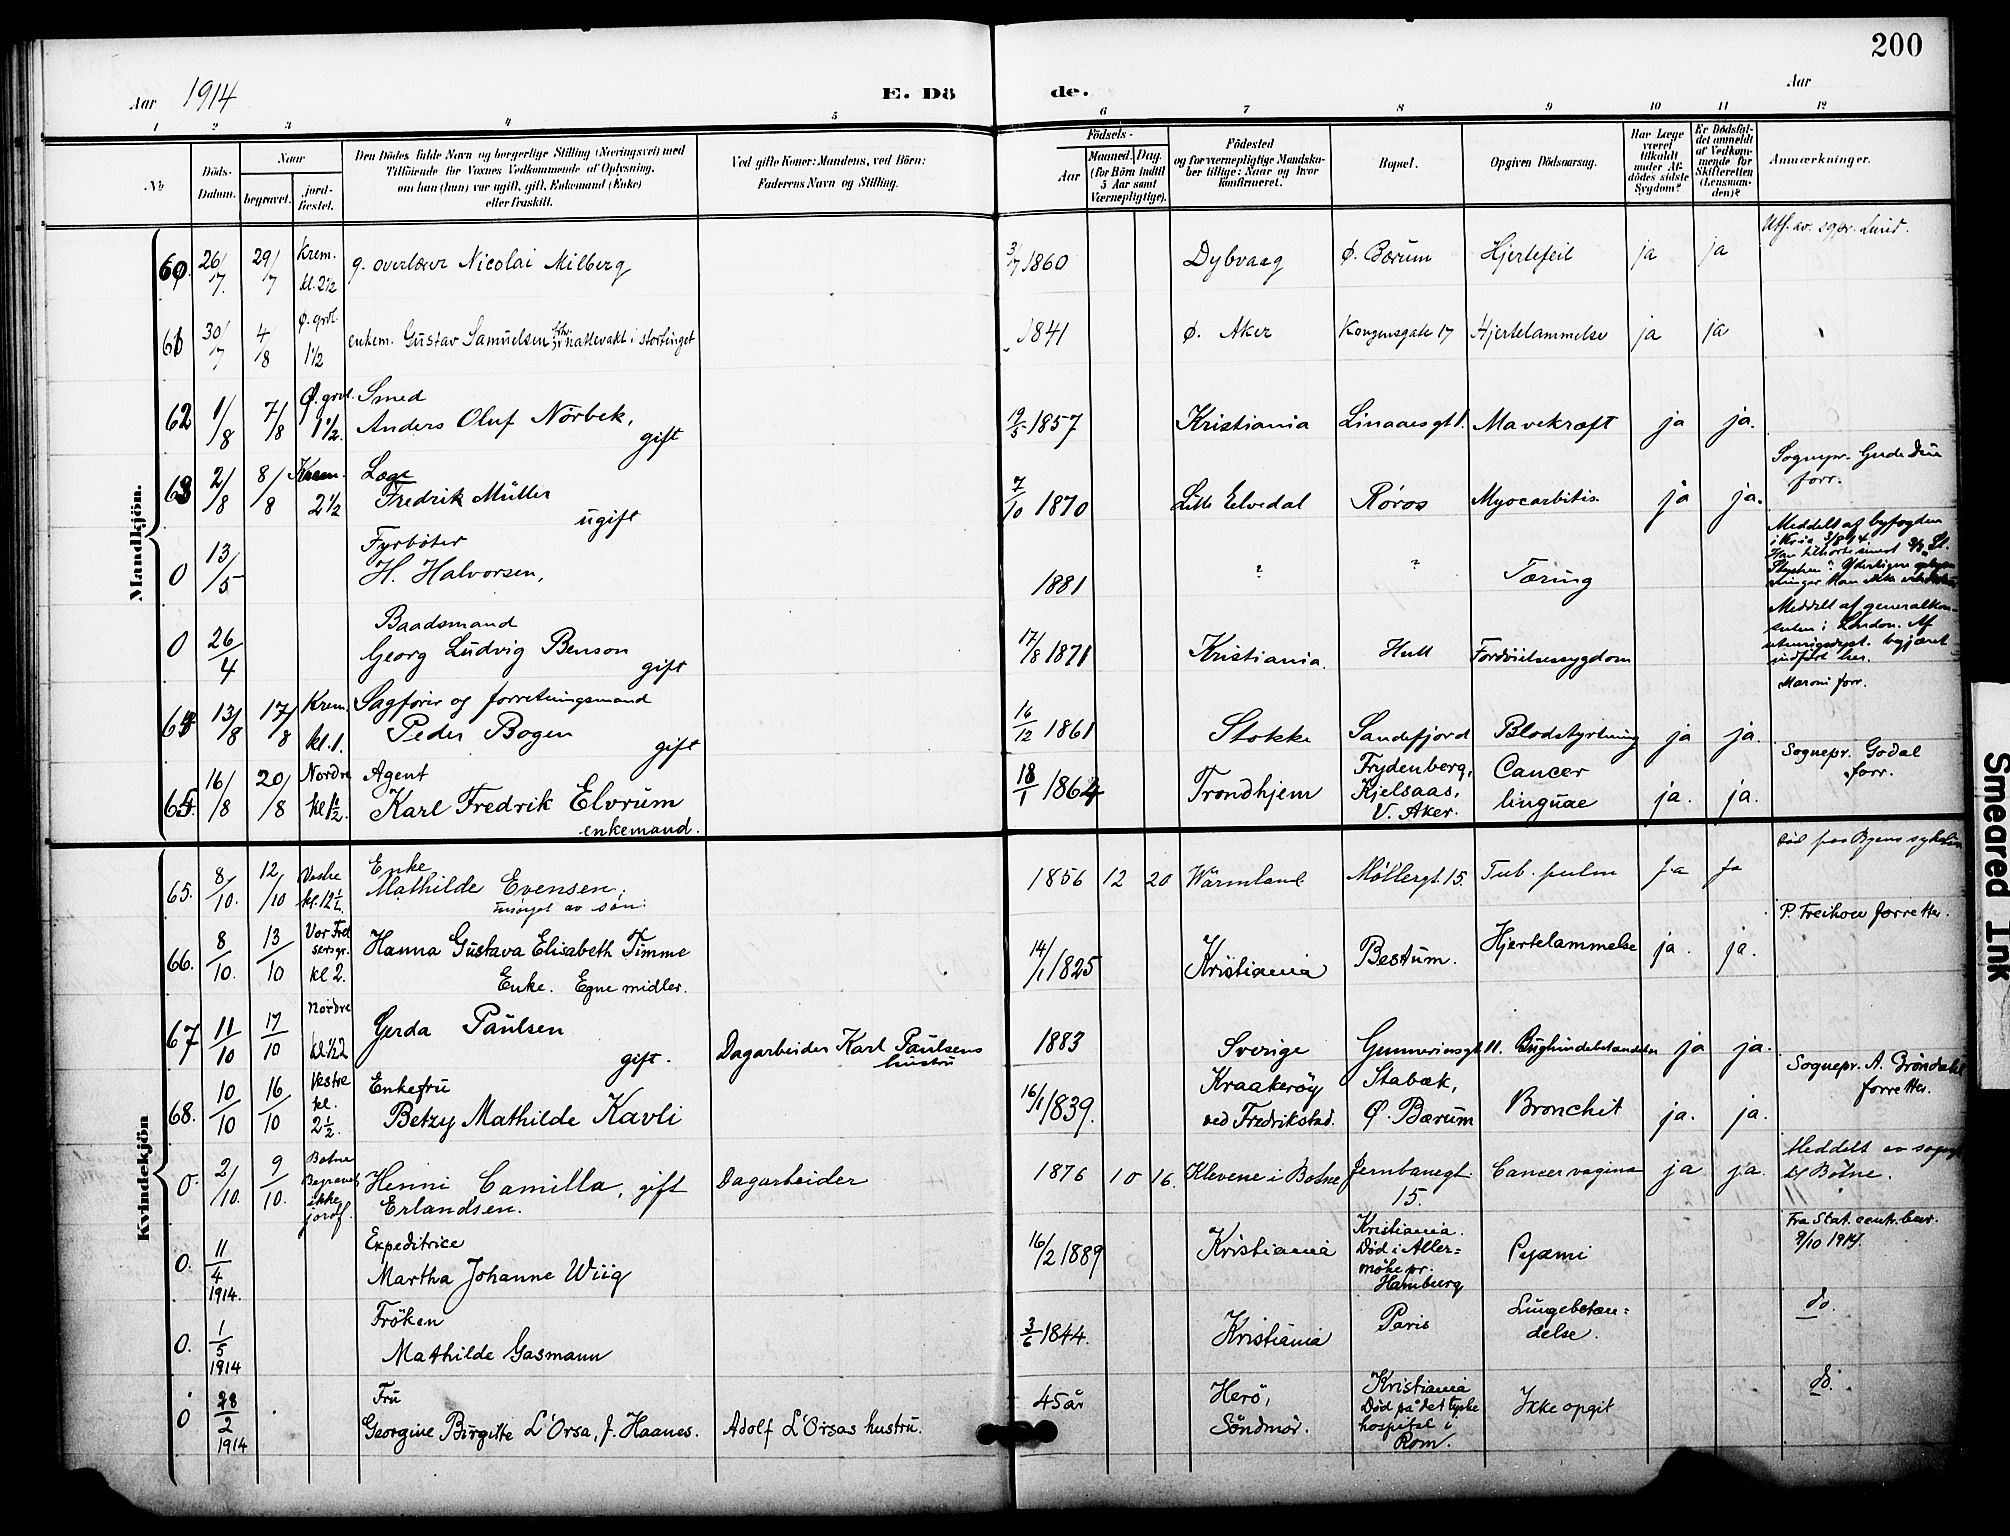 200
Aar 1914
E. Dö de.
Aar
1 2 3 4 5 6 7 8 9 10 11 12
No
Döds-Datum.
Naar
begravet.
jord-fæstet.
Den Dödes fulde Navn og borgerlige Stilling (Næringsvei) med
Tilföiende for Voxnes Vedkommende af Oplysning,
om han (hun) var ugift, gift, Enkemand (Enke)
eller fraskilt.
Ved gifte Koner: Mandens, ved Börn:
Faderens Navn og Stilling.
Födsels-
Aar
Maaned. Dag.
(for Börn indtil
5 Aar samt
Værnepligtige).
Födested
og for værnepligtige Mandska-
ber tillige: Naar og hvor
konfirmeret.
Bopæl.
Opgiven Dödsaarsag.
Har Læge
været
tilkaldt
under Af-
dödes sidste
Sygdom?
Er Dödsfal-
det anmeldt
af Vedkom-
mende for
Skifteretten
(Lensman-
den)?
Anmærkninger.
Mandkjön.
60 26/7 29/7 Krem. kl. 2½ g. overlærer Nicolai Milberg 3/7 1860 Dybvaag Ø. Bærum Hjertefeil ja ja Utf. av sgpr. Lund.
61 30/7 4/8 Ø. grvl. 1½ enkem. Gustav Samuelsen nattevakt i stortinget 1841 Ø. Aker Kongensgate 17 Hjertelammelse ja ja
62 1/8 7/8 Ø. grvl. 1½. Smed
Anders Oluf Nörbek, gift 19/5 1857 Kristiania Linaaesgt 1. Mavekræft ja ja.
63 2/8 8/8 Krem. 2½ Læge
Fredrik Müller ugift 7/10 1870 Lille Elvedal Røros Myocarbitis ja ja. Sognepr. Gude Due forr.
0 13/5 Fyrböter
H. Halvorsen, 1881 ? ? Tæring Meddelt af byfogden
i Kria 3/8 14.
0 26/4 Baadsmand
Georg Ludvig Benson gift 17/8 1871 Kristiania. Hull Fordöielsessygdom Meddelt af generalkon-
sulen i London. Af
utenrigsdept. begjæret
indført her.
64 13/8 17/8 Krem. kl. 1. Sagfører og forretningsmand
Peder Bogen gift 16/12 1861 Stokke Sandefjord Blodstyrtning ja ja. Maroni forr.
65. 16/8 20/8 Nordre kl 1½. Agent
Karl Fredrik Elvrum
enkemand. 18/1 1864 Trondhjem Frydenberg, Kjelsaas, V. Aker. Cancer linguae ja. ja. Sognepr. Godal forr.
Kvindekjön
65. 8/10. 12/10 Vestre kl. 12½. Enke
Mathilde Evensen,
forsørget av søn. 1856 12 20 Wärmland Møllergt. 15. Tub. pulm Ja Ja Død paa Byens
66. 8/10. 13/10 Vor Frel sersgr. kl 2. Hanna Gustava Elisabeth Timme
Enke. Egne midler. 14/1 1825 Kristiania Bestum. Hjertelammelse ja. ja. P. Freihow forretter.
67 11/10 17/10 Nordre kl ½2 Gerda Paulsen
gift. Dagarbeider Karl Paulsens hustru 1883 Sverige Gunneriusgt 11. Bughindebetændelse ja ja.
68. 10/10 16/10 Vestre kl. 2½. Enkefru
Betzy Mathilde Kavli 16/1 1839. Kraakeröy ved Fredrikstad. Stabæk, Ø. Bærum Bronchit ja. ja. Sognepr. A. Gröndahl forretter.
0. 2/10. 9/10. Botne Begravet ikke jordf. Henni Camilla, gift
Erlandsen. Dagarbeider 1876 10 16. Klevene i Botne Jernbanegt. 15. Cancer vagina ja ja. Meddelt av sognepr til Botne.
0. 11/4 1914. Expeditrice
Martha Johanne Wiig 16/2 1889 Kristiania Kristiania.
Død i Aller-
möhe pr.
Hamburg Pyæmi Fra Stat. centr. byr.
9/10 1914.
0. 1/5 1914 Fröken
Mathilde Gasmann 3/6 1844. Kristiania Paris Lungebetæn-
delse. do.
0 28/2 1914 Fru
Georgine Birgitte L'Orsa, f. Haanes. Adolf L'Orsas hustru. 45 år Herö, Söndmör. Kristiania
Død på det tyske
hospital i
Rom. Ikke opgit do.
Smeared Ink